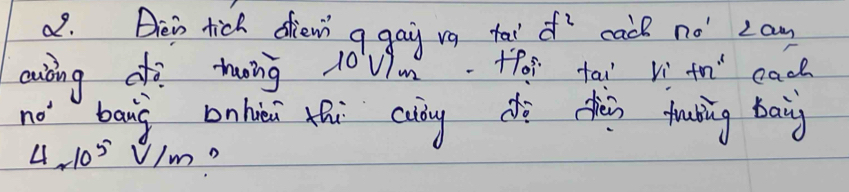 2. Điện tích điểm q gây ra tại đ² cách nó 2 cm
cường độ trường 10⁵ V/m. Hỏi tại vị trí cách
nó bằng bnhiêu thì cường độ điện trường bằng
4.10⁵ V/m?